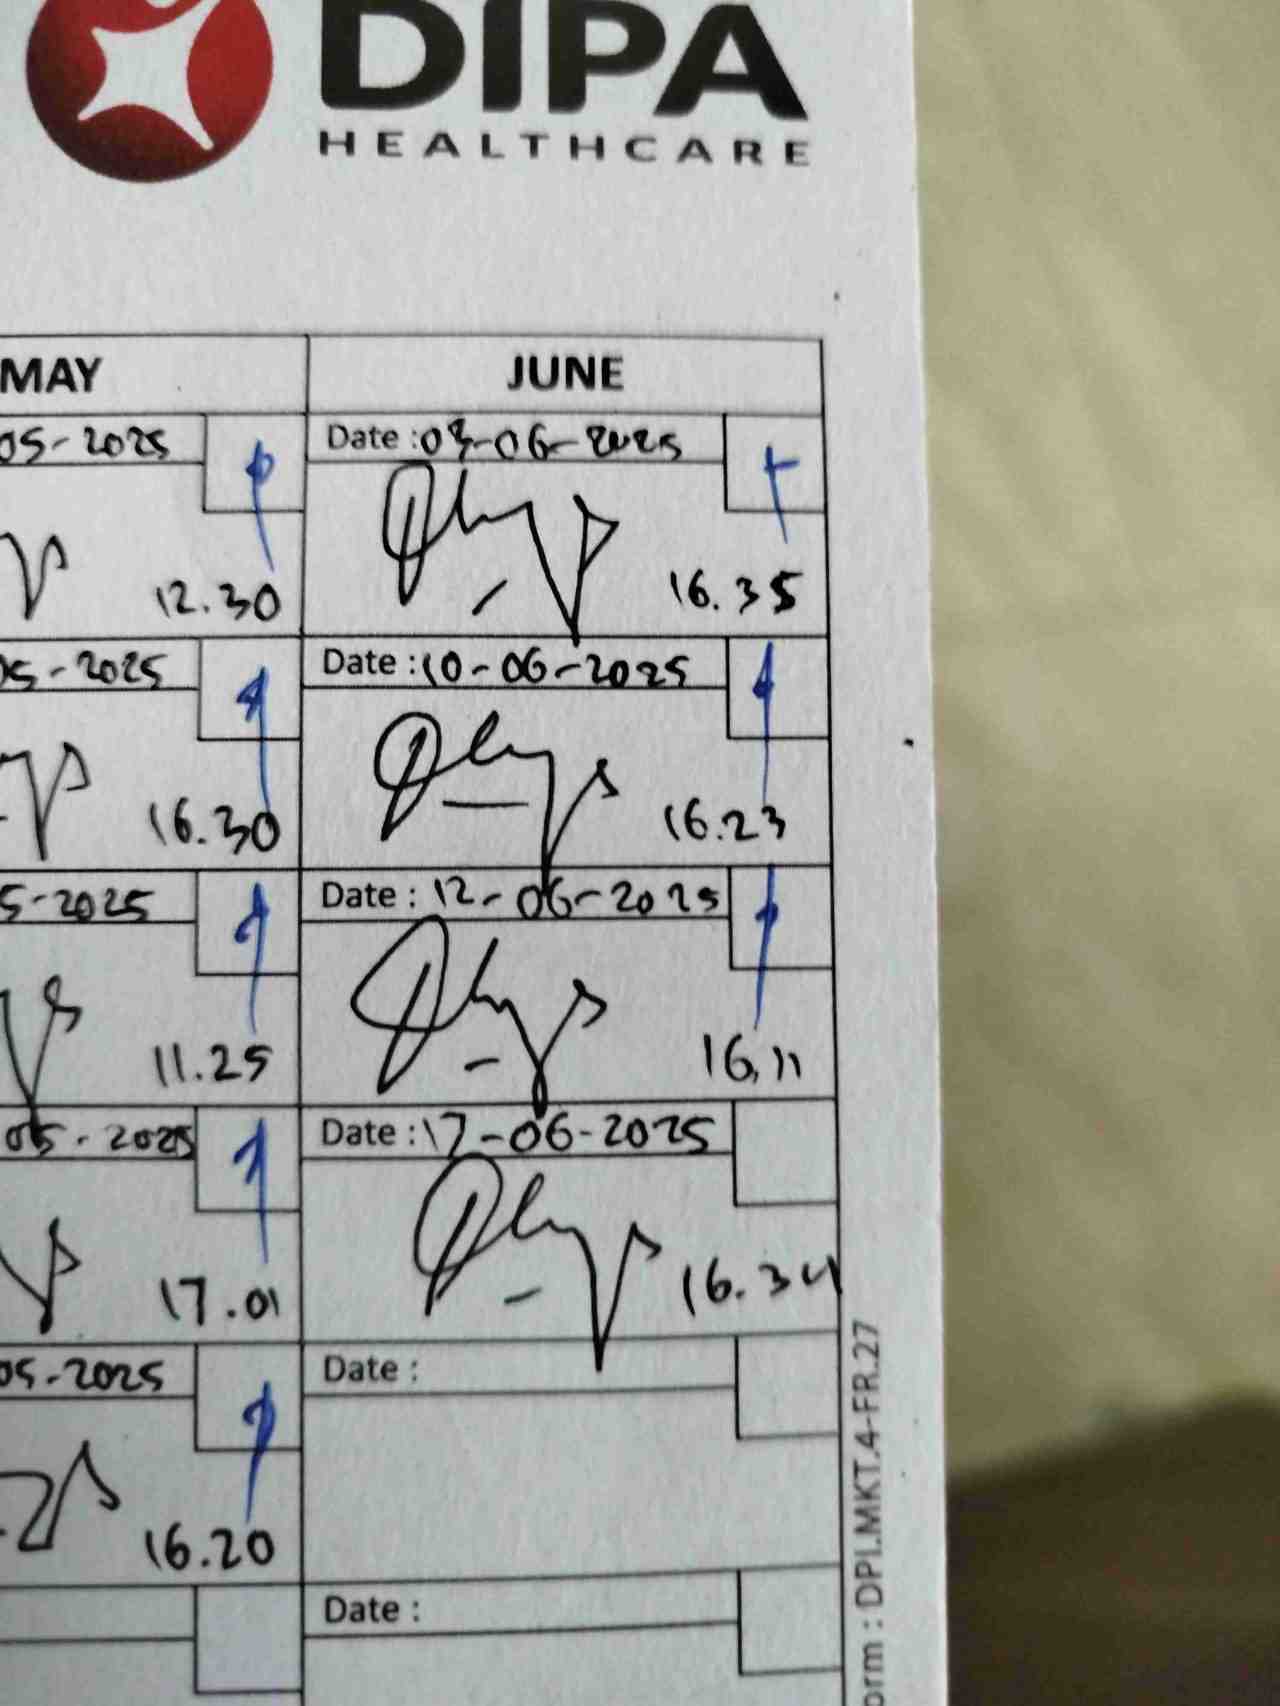 DIPA
HEALTHCARE
MAY JUNE
05-2025 Date : 03-06-2025
12.30 16.35
05-2025 Date : 10-06-2025
16.30 16.23
5-2025 Date : 12-06-2025
11.25 16.11
05-2025 Date : 17-06-2025
17.01 16.34
05-2025 Date :
16.20
Date :
orm : DPI.MKT.4-FR.27